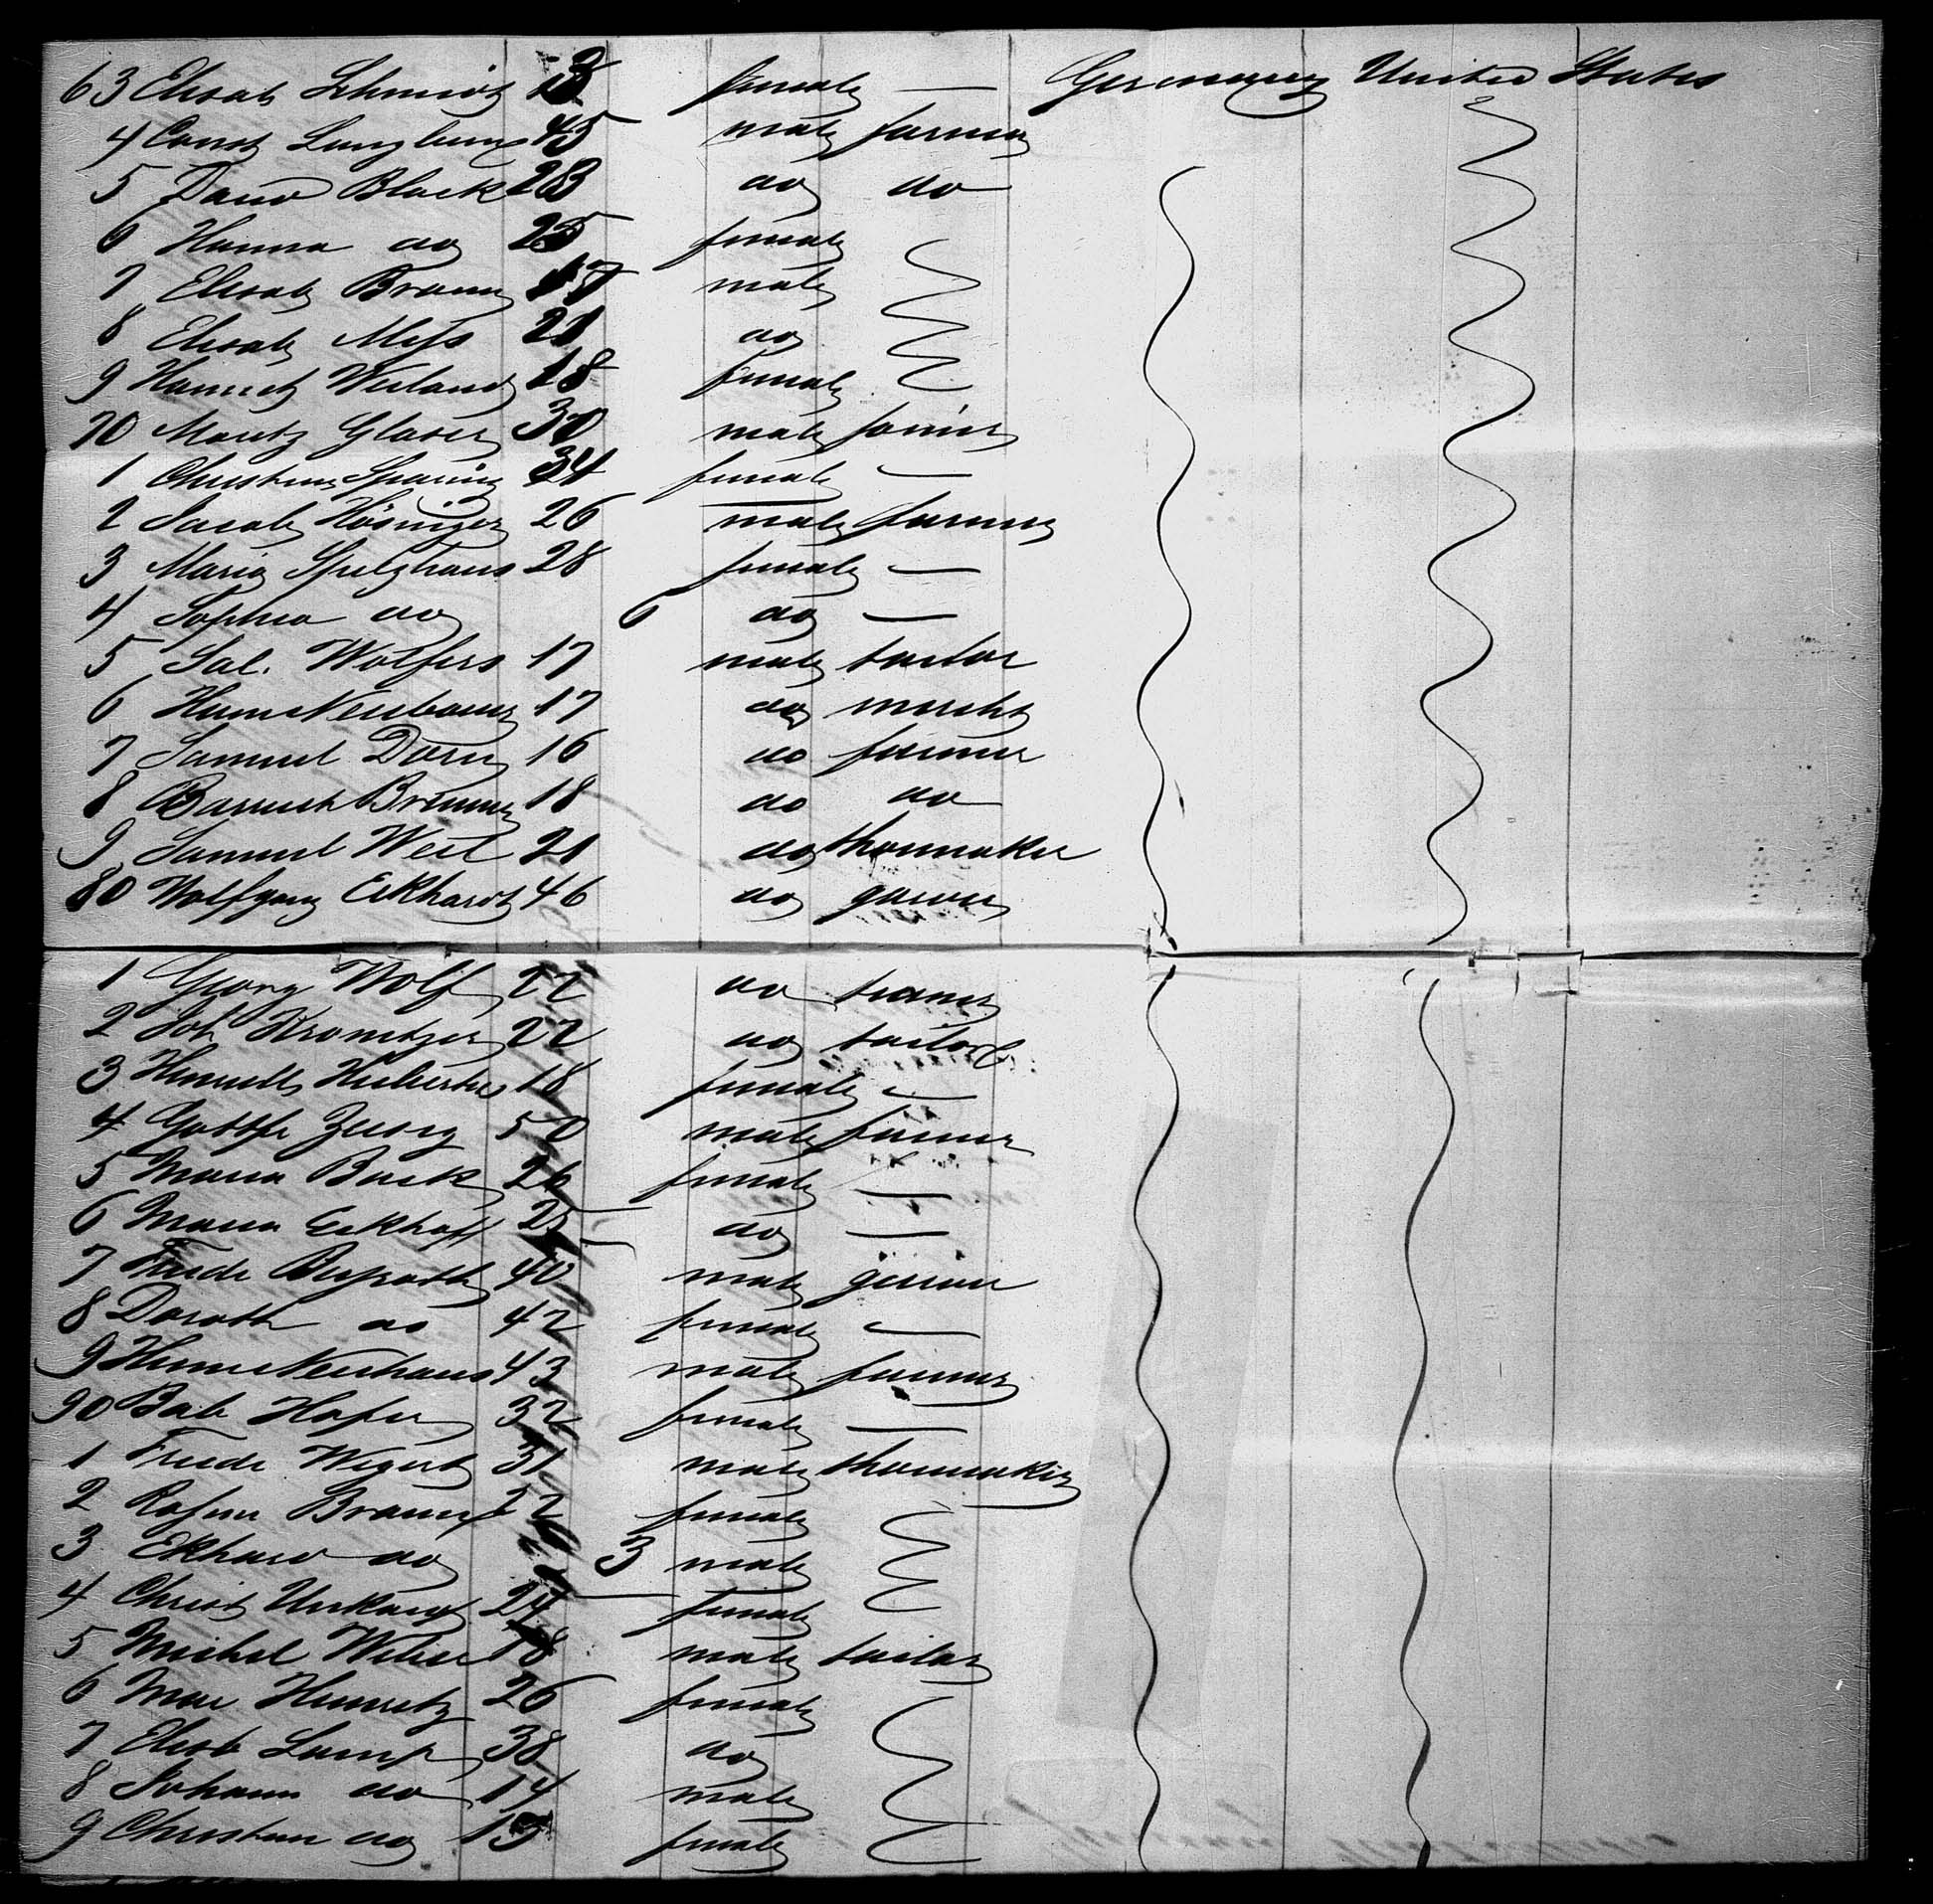 63 Elisab Schmidt female — Germany United States
4 Const 45 male farmer
5 David Black 28 do do
6 Hanna do 25 female
7 Elisab Braun 17 male
8 Elisab Mess 21 do
9 Weiland 18 female
70 Moritz Glaser 30 male joiner
1 Christina 34 female —
2 Jacob Hösinger 26 male farmer
3 Maria Spelzhaus 28 female —
4 Sophia do 6 do —
5 Sal. Wolfers 17 male tailor
6 Herm Neubauer 17 do mercht
7 Samuel Dorn 16 do farmer
8 Baruch Brimmer 18 do do
9 Samuel Weil 21 do shoemaker
80 Wolfgang Eckhardt 46 do
1 Georg Wolf 22 do
2 Joh Kronitzer 22 do tailor
3 18 female —
4 Gottfr 50 male farmer
5 Maria Buck 26 female —
6 Maria Eckhoff 25 do —
7 Friedr 40 male
8 Doroth do 42 female —
9 Herm Neuhaus 43 male farmer
90 Bab Hofer 32 female —
1 Friedr Wigert 31 male shoemaker
2 Braun 22 female
3 Ekhard do 3 male
4 Christ 24 female
5 Michel Weber 18 male tailor
6 Mar 26 female
7 Elisab Lamp 38 do
8 Johann do 14 male
9 Christian do 15 female